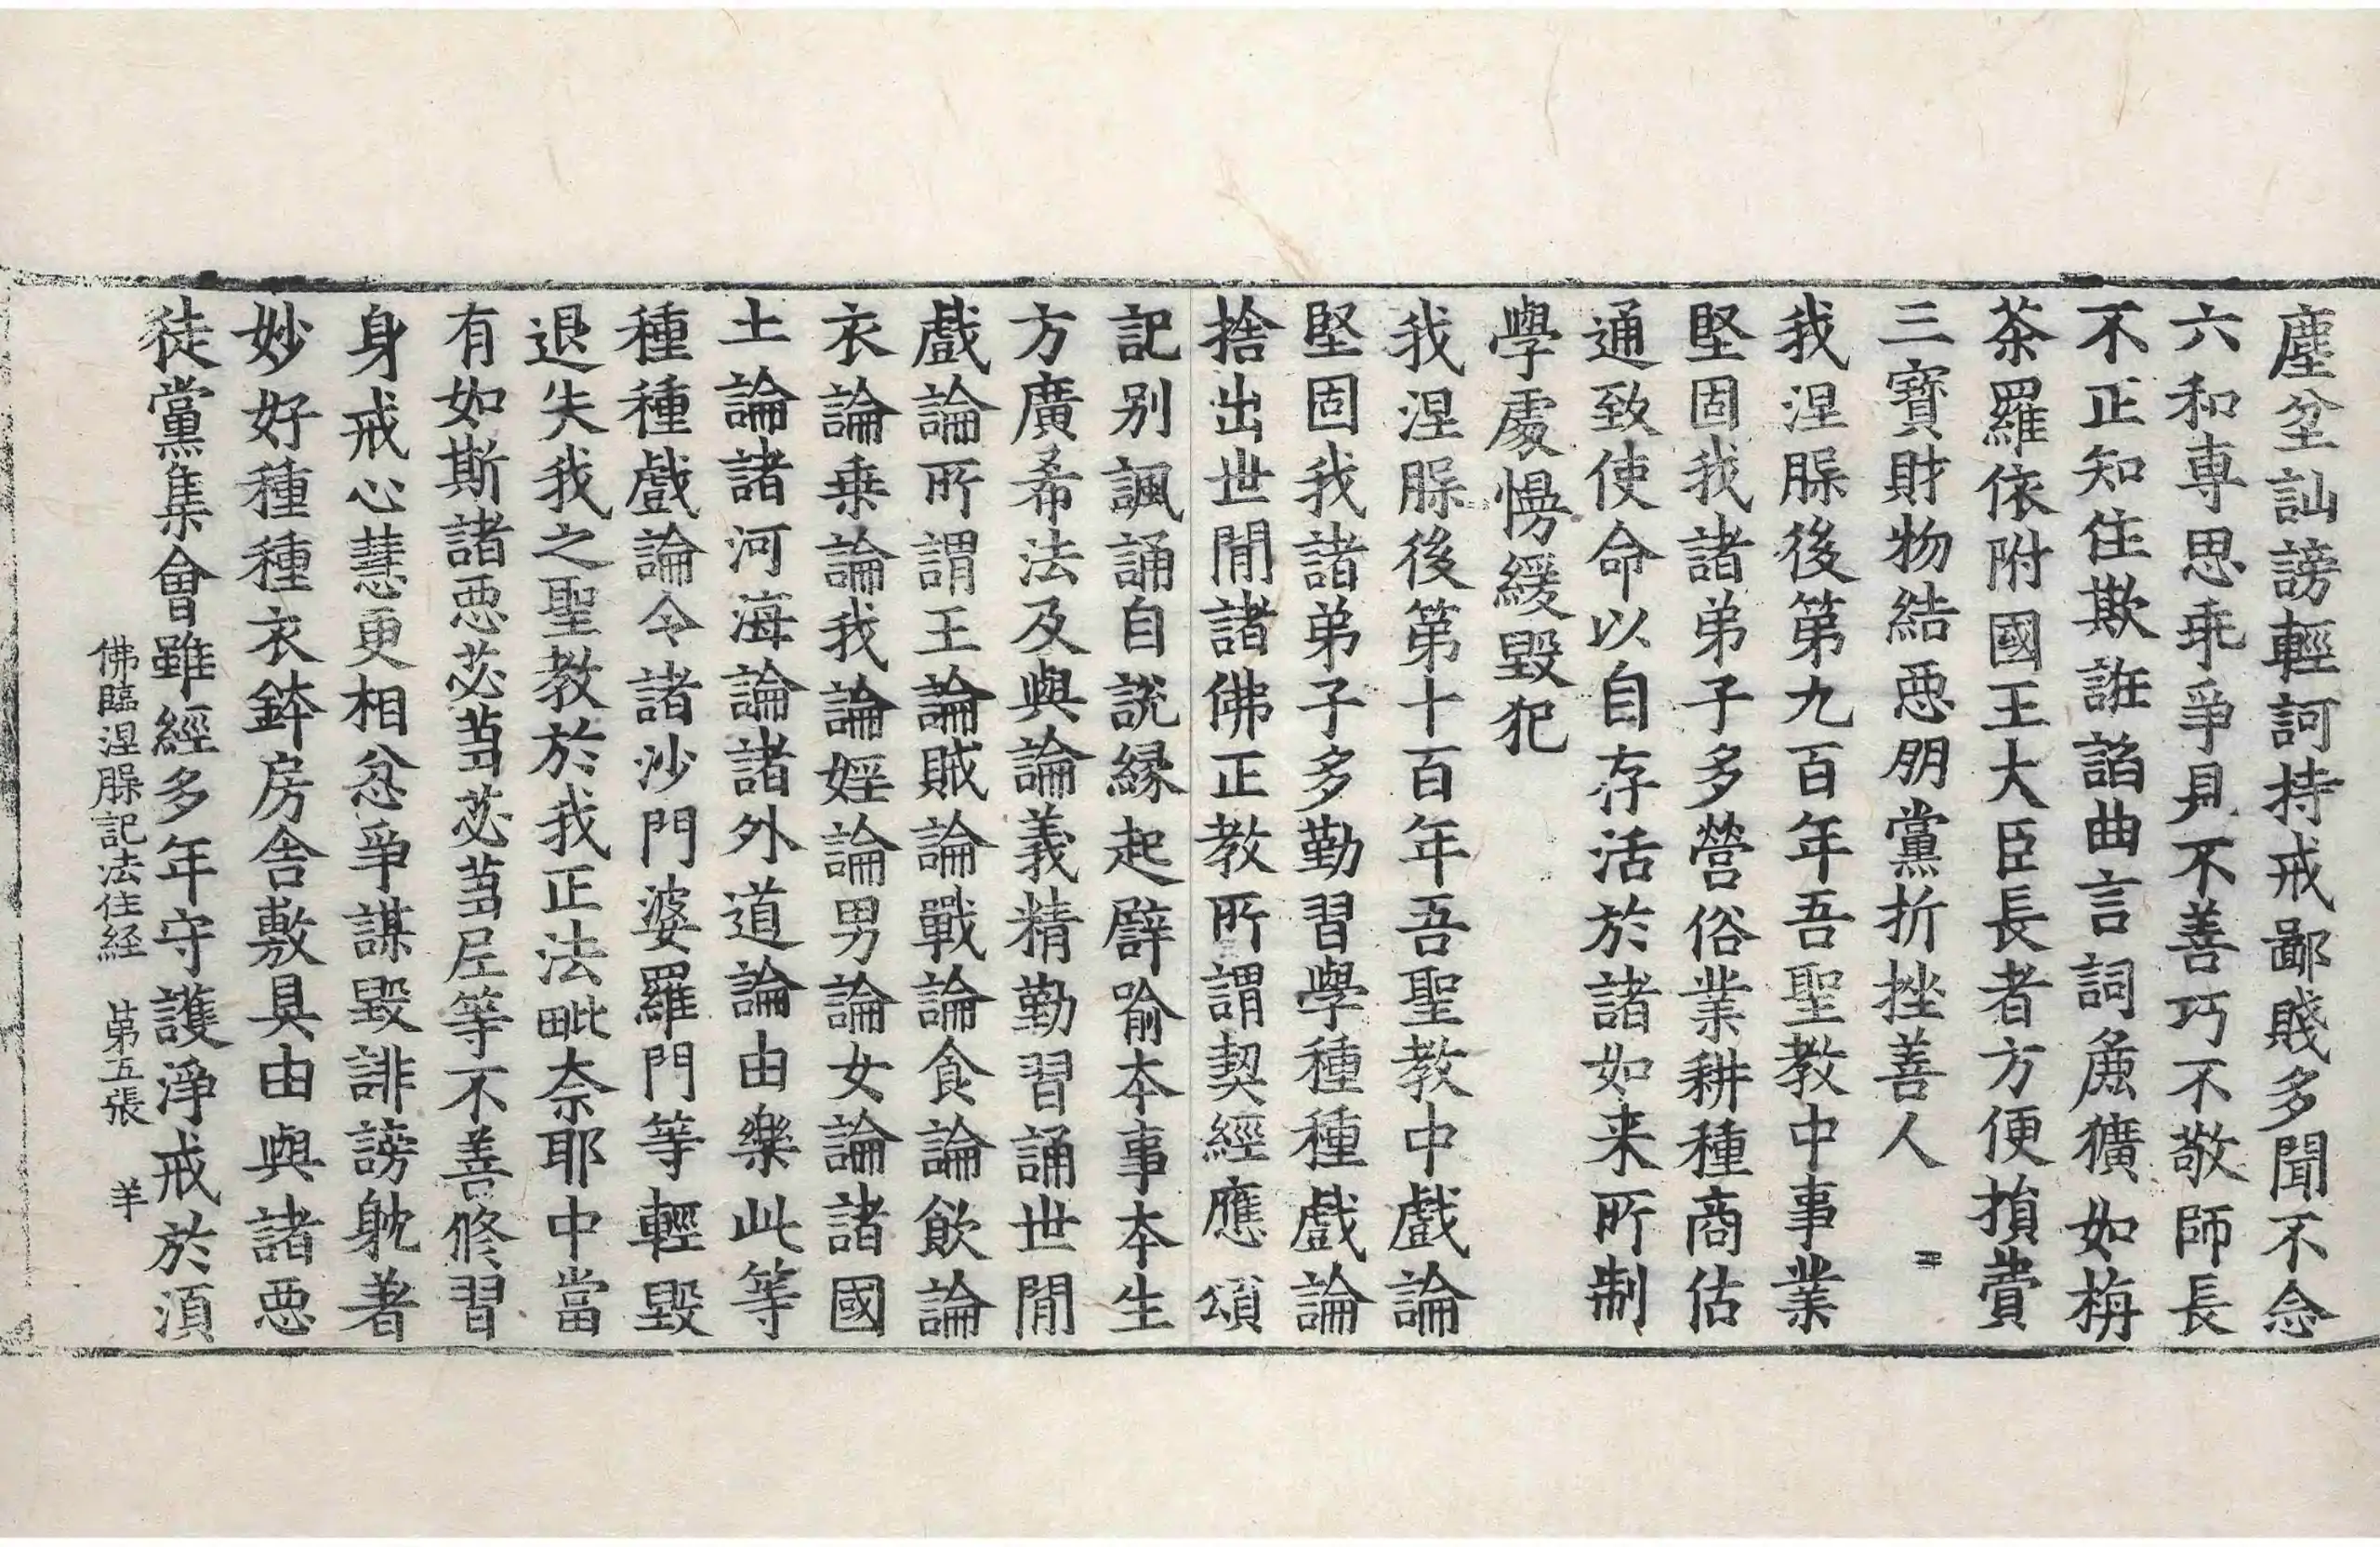 塵坌訕謗輕訶持戒鄙賤多聞不念
六和專思乖爭具不善巧不敬師長
不正知住欺誑諂曲言詞麁獷如栴
茶羅依附國王大臣長者方便損費
三寶財物結惡朋黨折挫善人
我涅腺後第九百年吾聖教中事業
堅固我諸弟子多營俗業耕種商估
通致使命以自存活於諸如来所制
學處慢緩毀犯
我涅腺後第十百年吾聖教中戲論
堅固我諸弟子多勤習學種種戲論
捨出世閒諸佛正教所謂契經應頌
記別諷誦自說緣起譬喻本事本生
方廣希法及與論義精勤習誦世閒
戲論所謂王論賊論戰論食論飲論
衣論乗論我論婬論男論女論諸國
土論諸河海論諸外道論由樂此等
種種戲論令諸沙門婆羅門等輕毀
退失我之聖教於我正法毗奈耶中當
有如斯諸惡苾芻苾芻尼等不善修習
身戒心慧更相忿爭謀毀誹謗躭著
妙好種種衣鉢房舍敷具由與諸惡
徒黨集會雖經多年守護淨戒於須
佛臨涅腺記法住経 第五張 羊